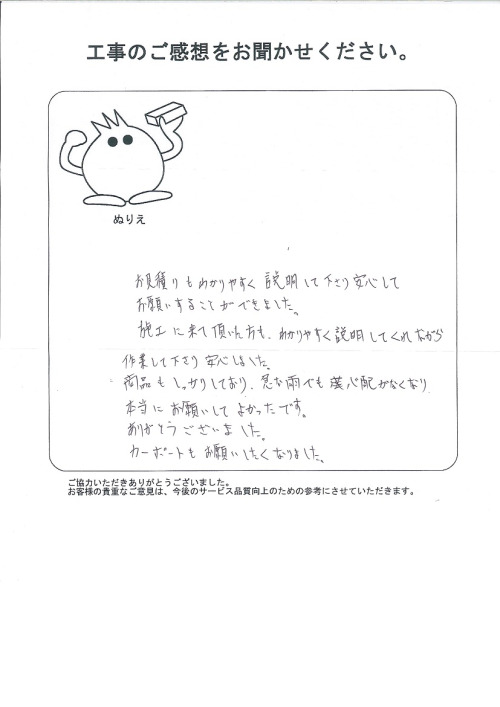 工事のご感想をお聞かせください。
ぬりえ
お見積りもわかりやすく説明して下さり安心して
お願いすることができました。
施工に来て頂いた方も、わかりやすく説明してくれながら
作業して下さり安心しました。
商品もしっかりしており、急な雨でも心配がなくなり
本当にお願いしてよかったです。
ありがとうございました。
カーポートもお願いしたくなりました。
ご協力いただきありがとうございました。
お客様の貴重なご意見は、今後のサービス品質向上のための参考にさせていただきます。